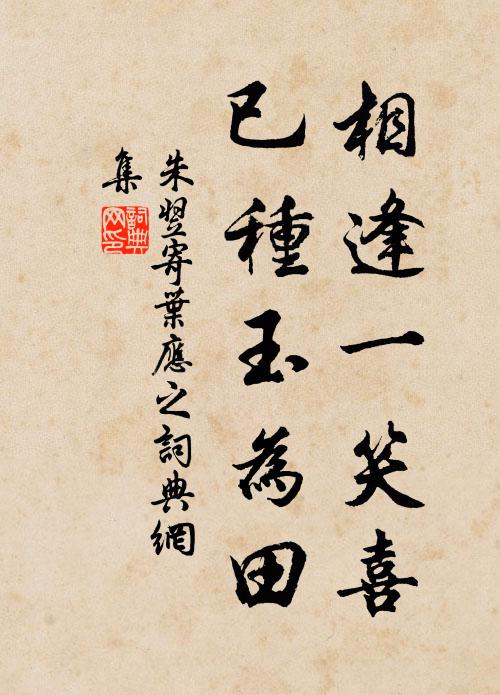 相逢一笑喜
已種玉為田
朱翌寄葉應之詞典網
集
詞典
网印